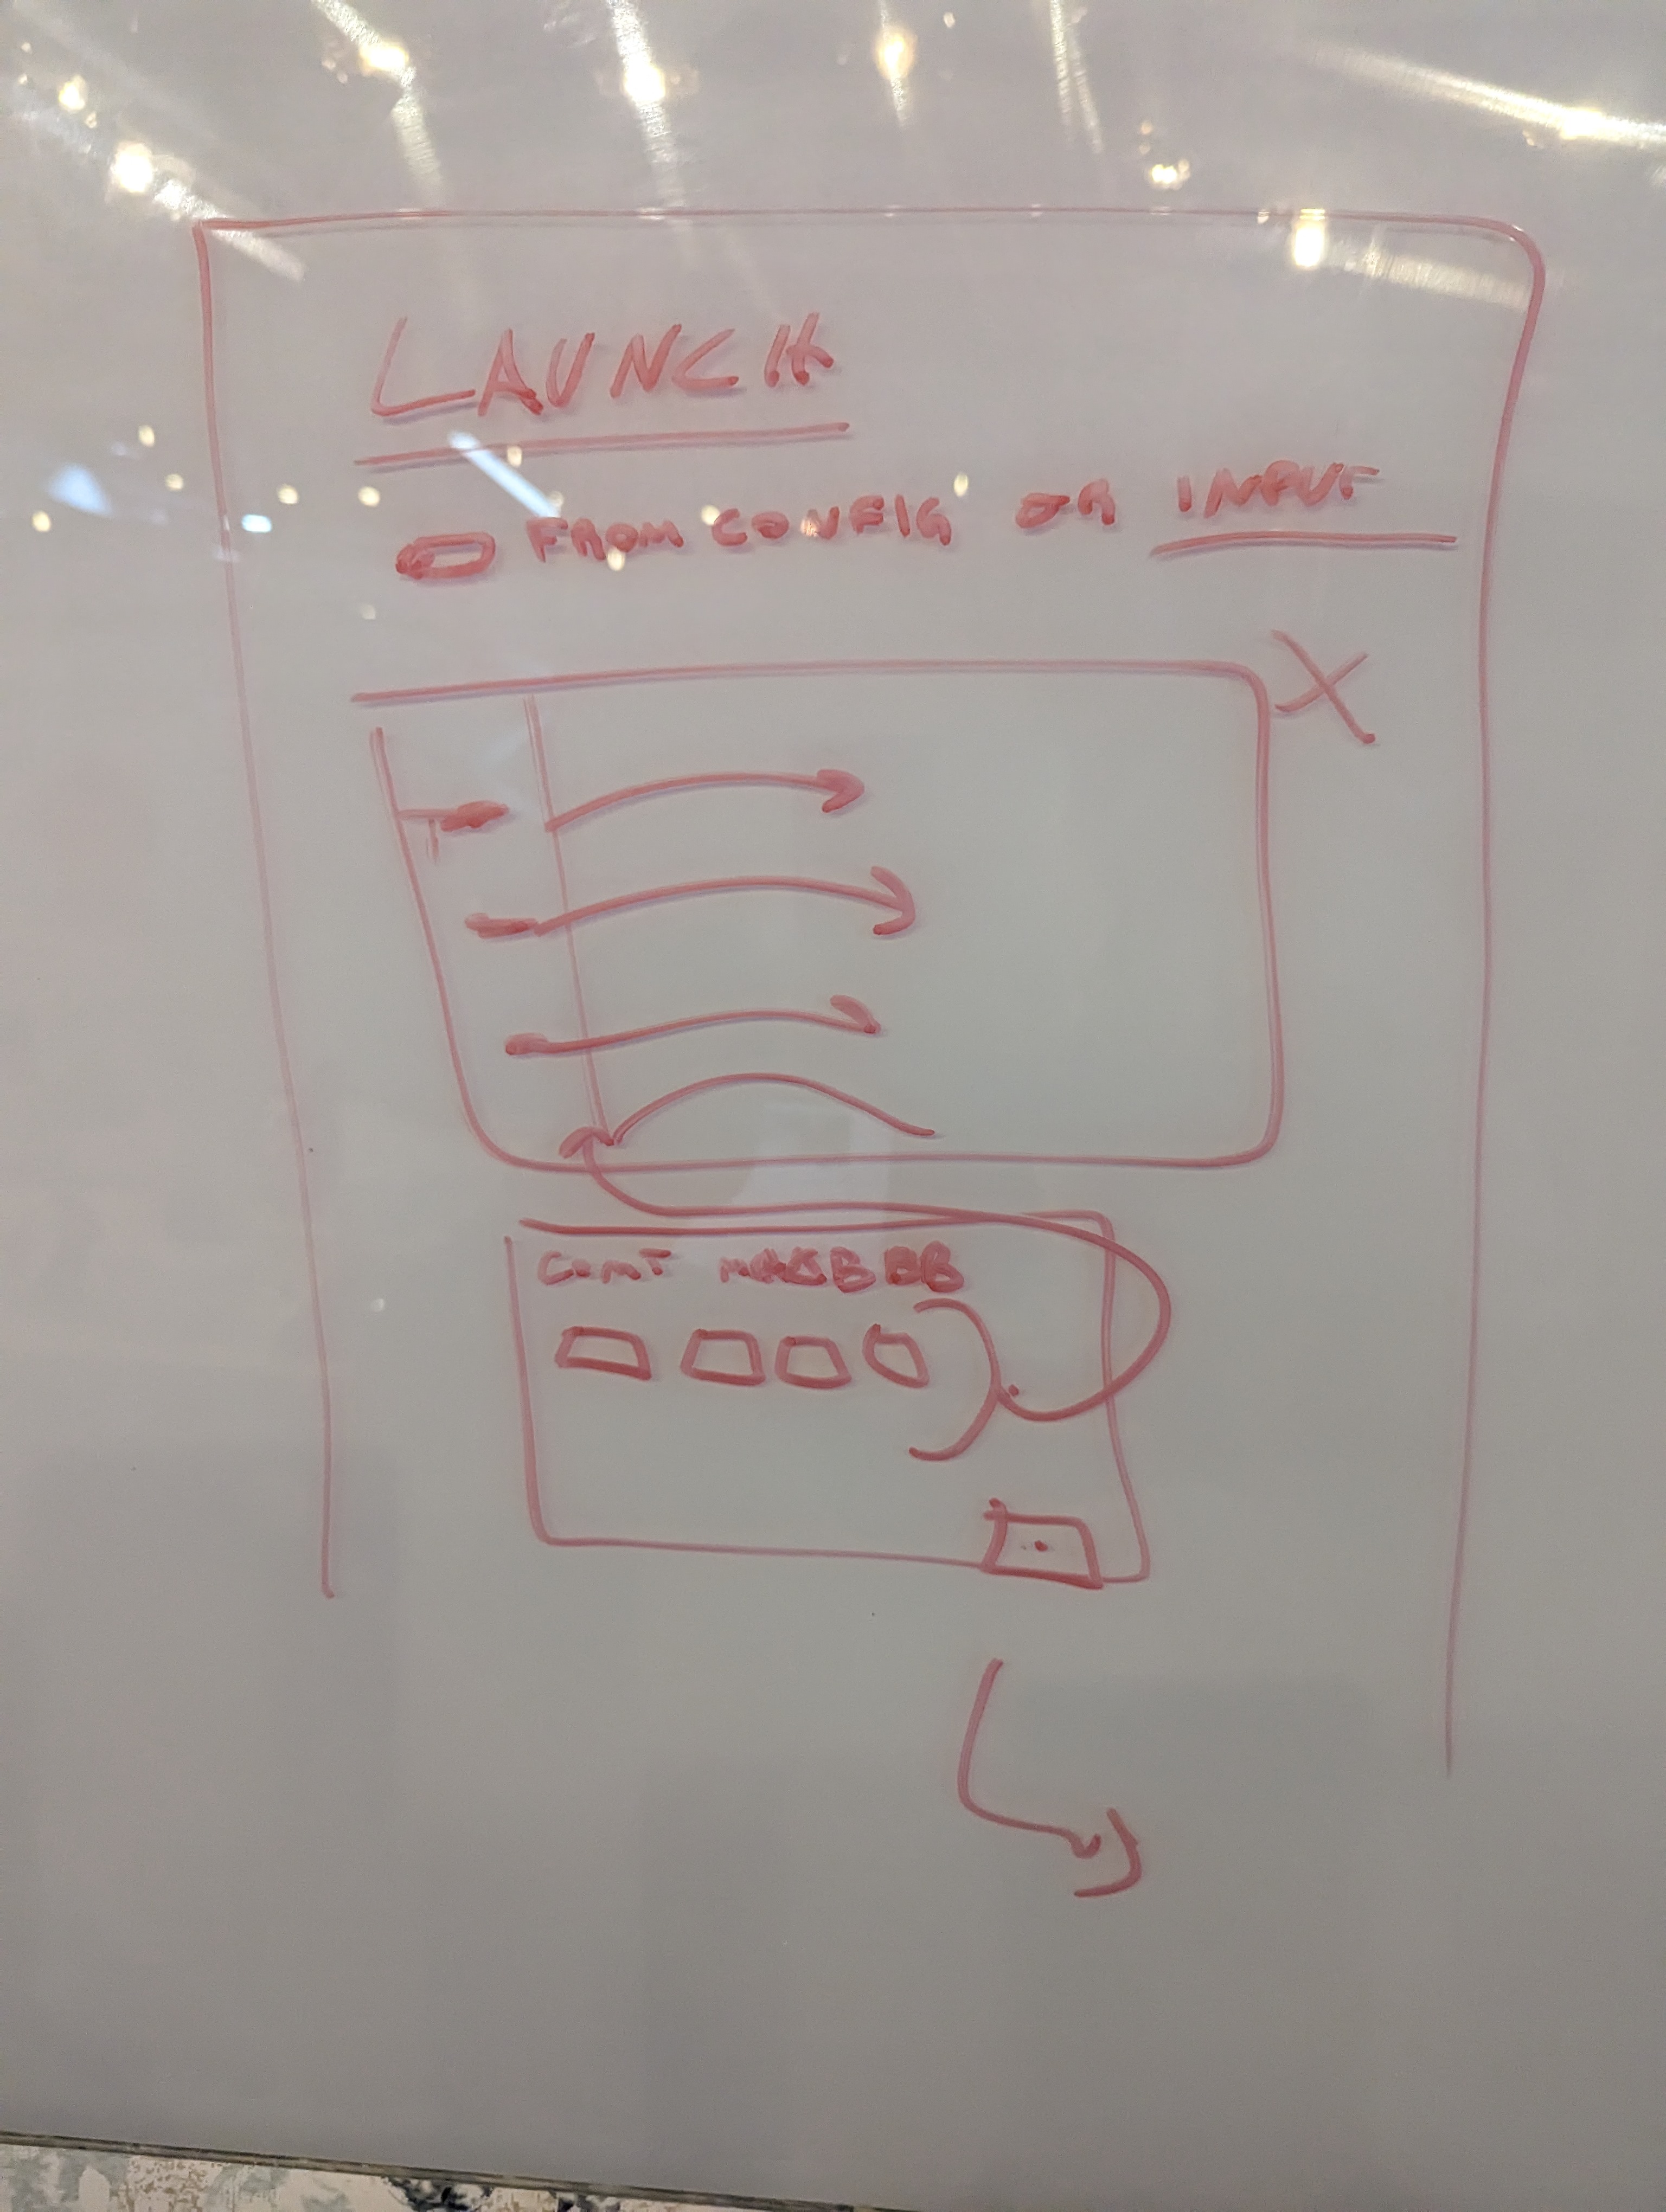 LAUNCH
FROM CONFIG OR INPUT